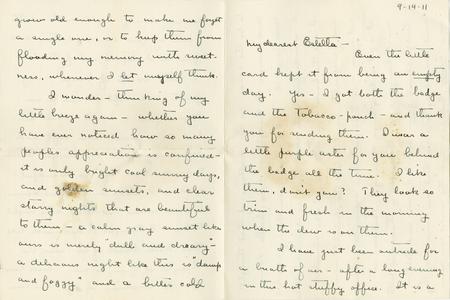 grow old enough to make me forget
a single one, or to keep them from
flooding my memory with sweet-
ness, whenever I let myself think.
I wonder - thinking of my
little breeze again - whether you
have ever noticed how so many
peoples appreciation is confined -
it is only bright cool sunny days,
and golden sunsets, and clear
starry nights that are beautiful
to them - a calm gray sunset like
ours is merely "dull and dreary"
a delicious night like this is "damp
and foggy" and a bitter cold
9-14-11
My dearest
Even the little
card kept it from being an empty
day. Yes - I got both the badge
and the Tobacco-pouch - and thank
you for sending them. I wear a
little purple aster for you behind
the badge all the time. I like
them, don't you? They look so
trim and fresh in the morning
when the dew is on them.
I have just been outside for
a breath of air - after a long evening
in this hot stuffy office. It is a